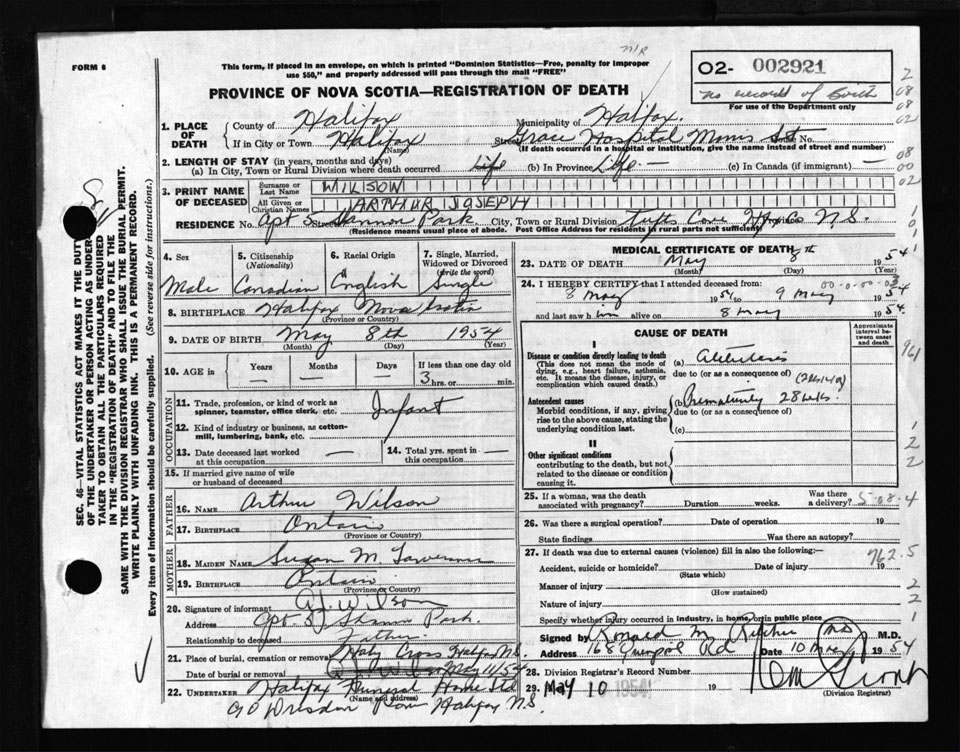 FORM 6
This form, if placed in an envelope, on which is printed "Dominion Statistics—Free, penalty for improper use $50," and properly addressed will pass through the mail "FREE"
02- 002921
no record of birth
For use of the Department only
PROVINCE OF NOVA SCOTIA—REGISTRATION OF DEATH
1. PLACE OF DEATH
County of Halifax Municipality of Halifax.
If in City or Town Halifax (Name) Street Grace Hospital Morris St No.
(If death occurred in a hospital or institution, give the name instead of street and number)
2. LENGTH OF STAY (in years, months and days)
(a) In City, Town or Rural Division where death occurred Life (b) In Province Life — (c) In Canada (if immigrant) —
3. PRINT NAME OF DECEASED
Surname or Last Name WILSON
All Given or Christian Names ARTHUR JOSEPH
RESIDENCE No. Apt 5 Street Shannon Park City, Town or Rural Division Tufts Cove Hfx Co N.S.
(Residence means usual place of abode. Post Office Address for residents in rural parts not sufficient)
4. Sex Male
5. Citizenship (Nationality) Canadian
6. Racial Origin English
7. Single, Married, Widowed or Divorced (write the word) Single
8. BIRTHPLACE Halifax Nova Scotia
(Province or Country)
9. DATE OF BIRTH May 8th 1954
(Month) (Day) (Year)
10. AGE in Years — Months — Days If less than one day old 3 hrs. or min.
OCCUPATION
11. Trade, profession, or kind of work as spinner, teamster, office clerk, etc. Infant
12. Kind of industry or business, as cotton-mill, lumbering, bank, etc. —
13. Date deceased last worked at this occupation —
14. Total yrs. spent in this occupation —
15. If married give name of wife or husband of deceased
FATHER
16. NAME Arthur Wilson
17. BIRTHPLACE Ontario
(Province or Country)
MOTHER
18. MAIDEN NAME Susan M.
19. BIRTHPLACE Ontario
(Province or Country)
20. Signature of informant Wilson
Address Apt. 5 Shannon Park.
Relationship to deceased Father.
21. Place of burial, cremation or removal Holy Cross Halifax N.S.
Date of burial or removal May 11/54
22. UNDERTAKER Halifax Funeral Home Ltd
(Name and address)
Row Halifax N.S.
MEDICAL CERTIFICATE OF DEATH
23. DATE OF DEATH May 8th 1954
(Month) (Day) (Year)
24. I HEREBY CERTIFY that I attended deceased from:
8 May 1954 to 9 May 1954
and last saw him alive on 8 May 1954
CAUSE OF DEATH
Approximate interval between onset and death
I
Disease or condition directly leading to death (This does not mean the mode of dying, e.g., heart failure, asthenia, etc. It means the disease, injury, or complication which caused death.)
(a) Atelectasis
due to (or as a consequence of)
Antecedent causes
Morbid conditions, if any, giving rise to the above cause, stating the underlying condition last.
(b) Prematurity 28 wks.
due to (or as a consequence of)
(c)
II
Other significant conditions contributing to the death, but not related to the disease or condition causing it.
25. If a woman, was the death associated with pregnancy? Duration weeks. Was there a delivery? 5-08-4
26. Was there a surgical operation? Date of operation 19
State findings Was there an autopsy?
27. If death was due to external causes (violence) fill in also the following:— 762.5
Accident, suicide or homicide? Date of injury 19
(State which)
Manner of injury
(How sustained)
Nature of injury
Specify whether injury occurred in industry, in home, or in public place
Signed by Ronald M. Ritchie MD M.D.
Address 168 Rd Date 10 May 1954
28. Division Registrar's Record Number
29. MAY 10 1954 19
(Division Registrar)
SEC. 46—VITAL STATISTICS ACT MAKES IT THE DUTY OF THE UNDERTAKER OR PERSON ACTING AS UNDERTAKER TO OBTAIN ALL THE PARTICULARS REQUIRED IN THE "REGISTRATION OF DEATH" AND TO FILE THE SAME WITH THE DIVISION REGISTRAR WHO SHALL ISSUE THE BURIAL PERMIT.
WRITE PLAINLY WITH UNFADING INK. THIS IS A PERMANENT RECORD.
Every item of information should be carefully supplied. (See reverse side for instructions.)